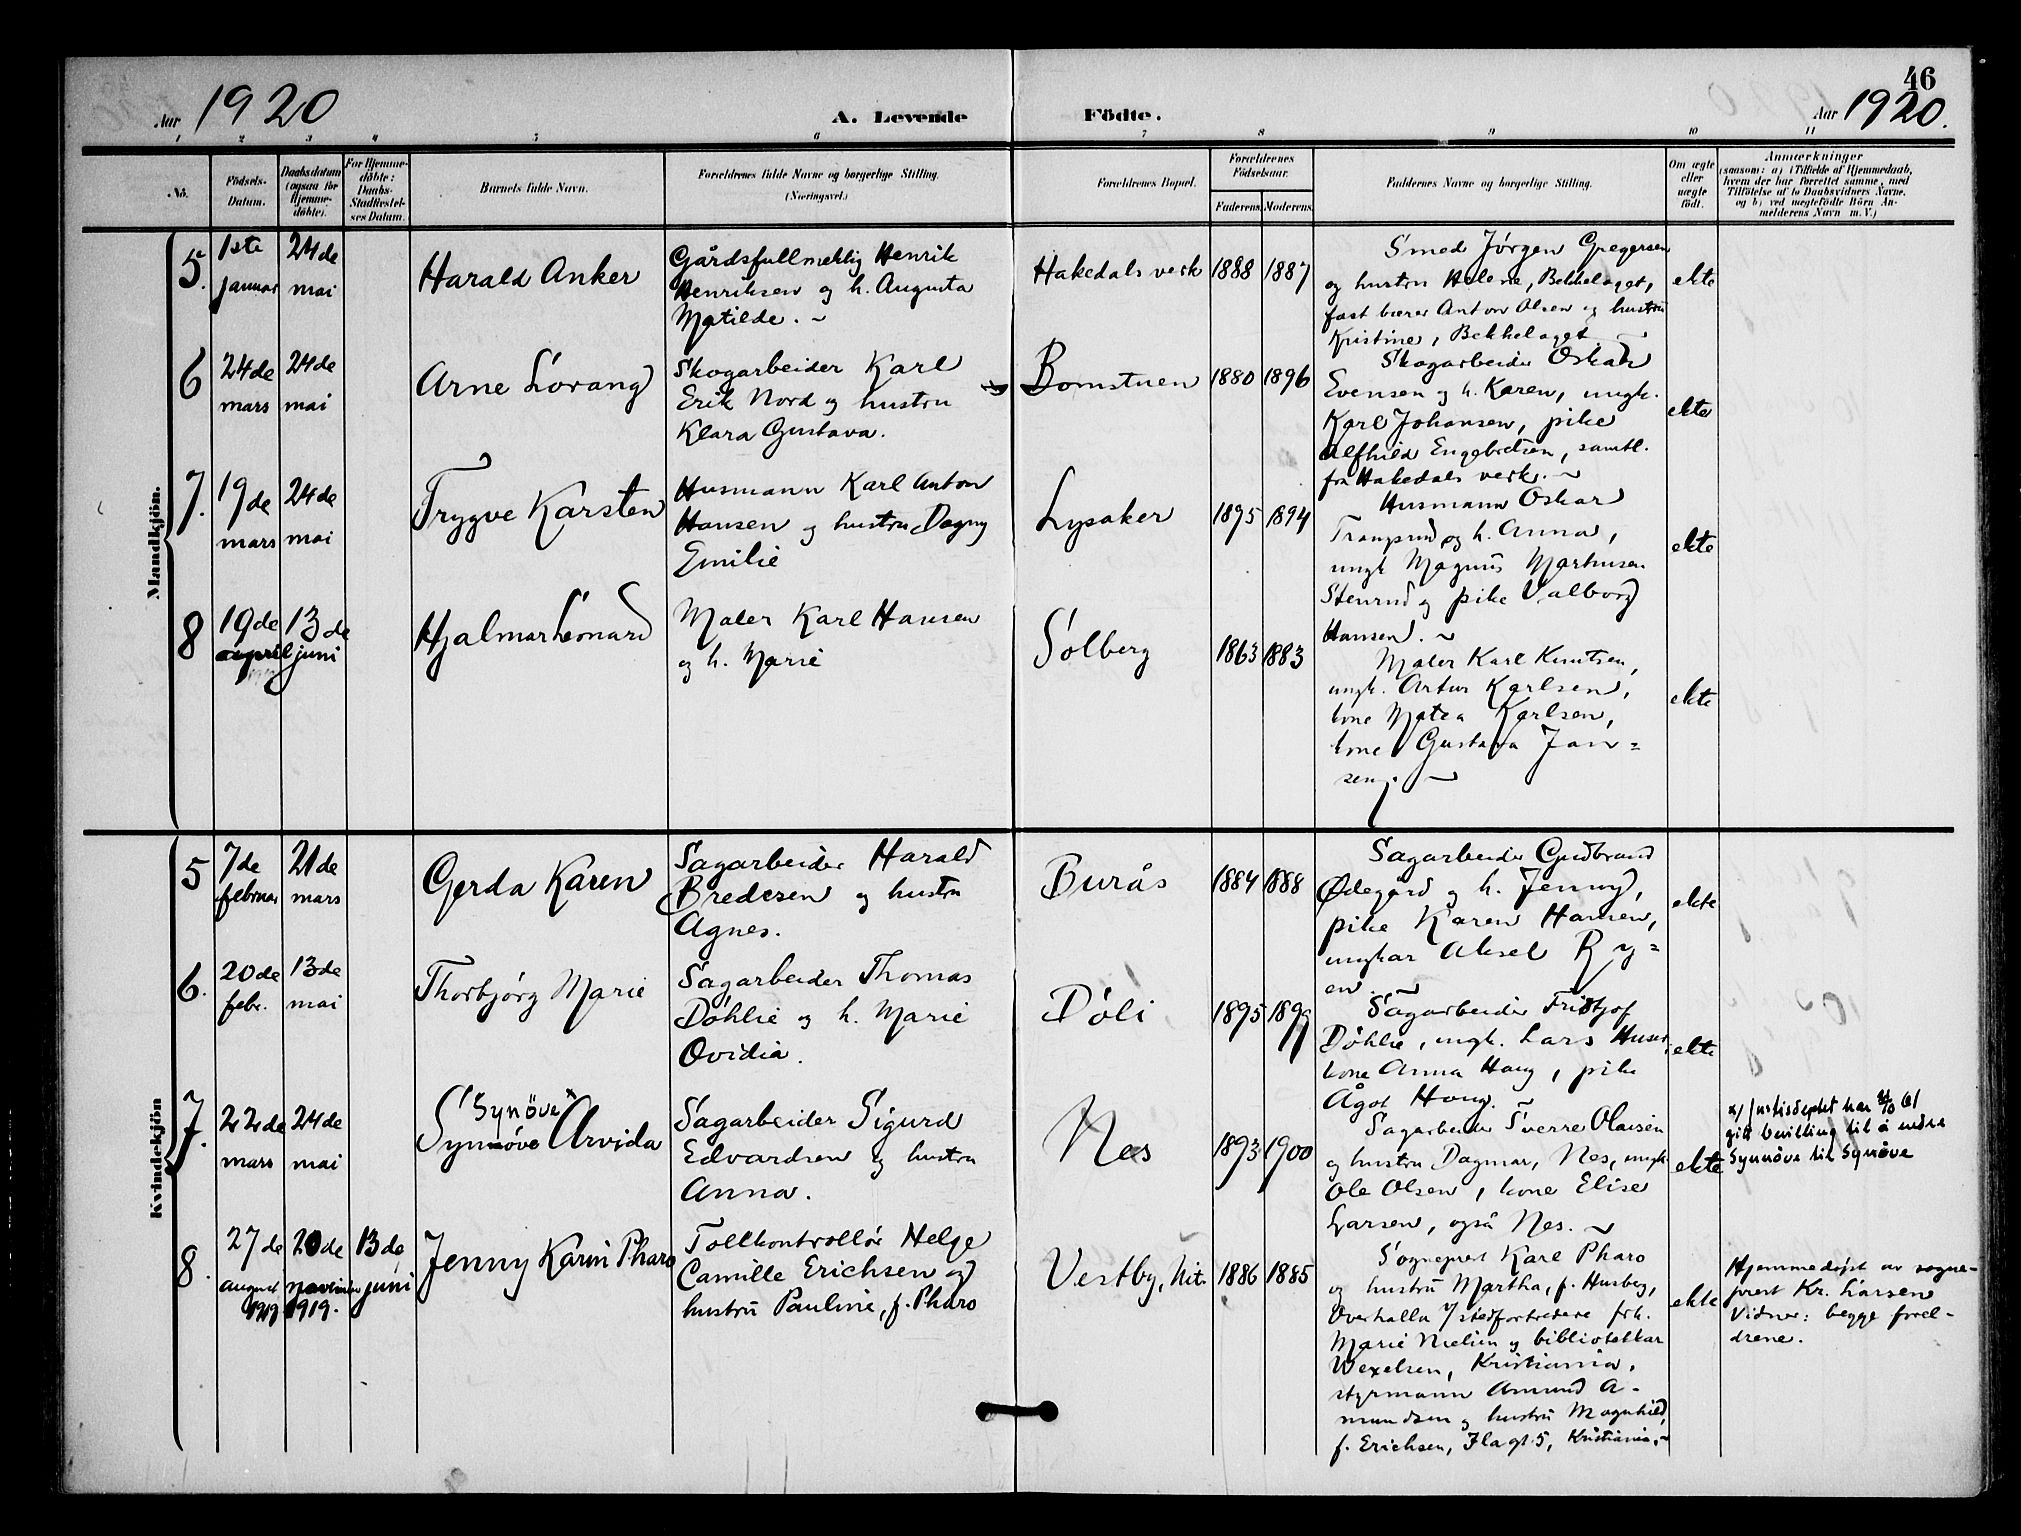 46
Aar 1920
A. Levende Födte.
Aar 1920.
1 2 3 4 5 6 7 8 9 10 11
No.
Födsels-
Datum.
Daabsdatum
(ogsaa for
Hjemme-
döbte).
For Hjemme-
döbte:
Daabs-
Stadfæstel-
ses Datum.
Barnets fulde Navn.
Forældrenes fulde Navne og borgerlige Stilling.
(Næringsvei.)
Forældrenes Bopæl.
Forældrenes
Födselsaar.
Faderens. Moderens.
Faddernes Navne og borgerlige Stilling.
Om ægte
eller
uægte
födt.
Anmærkninger
(saasom: a) i Tilfælde af Hjemmedaab,
hvem der har forrettet samme, med
Tilföielse af to Daabsvidners Navne.
og b) ved uegtefödte Börn An-
melderens Navn m. V.)
Mandkjön.
5. 1ste januar
24de mai
Harald Anker
Gårdsfullmektig Henrik
Henriksen og h. Augusta
Matilde.
Hakedals verk
1888 1887
Smed Jørgen Gregersen
og hustru Helene, Bekkelaget,
fast bærer Anton Olsen og hustru
Kristine, Bekkelaget.
ekte
6 24de mars
24de mai
Arne Lorang
Skogarbeider Karl
Erik Nord og hustru
Klara Gustava.
Bomstuen
1880 1896
Skogarbeider Oskar
Evensen og h. Karen, ungk.
Karl Johansen, pike
Alfhild Engebretsen, samtl.
fra Hakedals verk.
ekte
7. 19de mars
24de mai
Trygve Karsten
Husmann Karl Anton
Hansen og hustru Dagny
Emilie
Lysaker
1895 1894
Husmann Oskar
og h. Anna,
ungk Magnus Marthinsen
Stenrud og pike Valborg
Hansen.
ekte
8 19de april
13de juni
Hjalmar Leonard
Maler Karl Hansen
og h. Marie
Solberg
1863 1883
Maler Karl Knutsen,
ungk. Artur Karlsen,
kone Matea Karlsen,
kone Gustava Jan=
sen.
ekte
Kvindekjön
5 7de februar
21de mars
Gerda Karen
Sagarbeider Harald
Bredesen og hustru
Agnes.
Burås
1884 1888
Sagarbeider Gudbrand
Ødegård og h. Jenny,
pike Karen Hansen,
ungkar Aksel Ry=
en.
ekte
6. 20de febr.
13de mai
Thorbjørg Marie
Sagarbeider Thomas
Døhlie og h. Marie
Ovidia.
Døli
1895 1899
Sagarbeider Fridtjof
Døhlie, ungk. Lars
kone Anna Haug, pike
Ågot Haug.
ekte
7. 22de mars
24de mai
Synøve x
Synnøve Arvida
Sagarbeider Sigurd
Edvardsen og hustru
Anna.
Nes
1893 1900
Sagarbeider Sverre Olaisen
og hustru Dagmar, Nes, ungk
Ole Olsen, kone Elise
Larsen, også Nes.
ekte
x/ Justisdeptet har 61
gitt bevilling til å endre
Synnöve til Synöve
8. 27de august 1919
20de november 1919.
13de juni
Jenny Karin Pharo
Tollkontrollør Helge
Camille Erichsen og
hustru Pauline, f. Pharo
Vestby, Nit.
1886 1885
Sogneprest Karl Pharo
og hustru Martha, f. Husberg,
Overhalla v/ stedfortredere frk.
Marie Nielsen og bibliotekar
Wexelsen, Kristiania,
styrmann Amund A-
mundsen og hustru Magnhild,
f. Erichsen, Flagt. 5, Kristiania.
ekte
Hjemmedøpt av sogne-
prest Kr. Larsen
Vidner: begge forel-
drene.